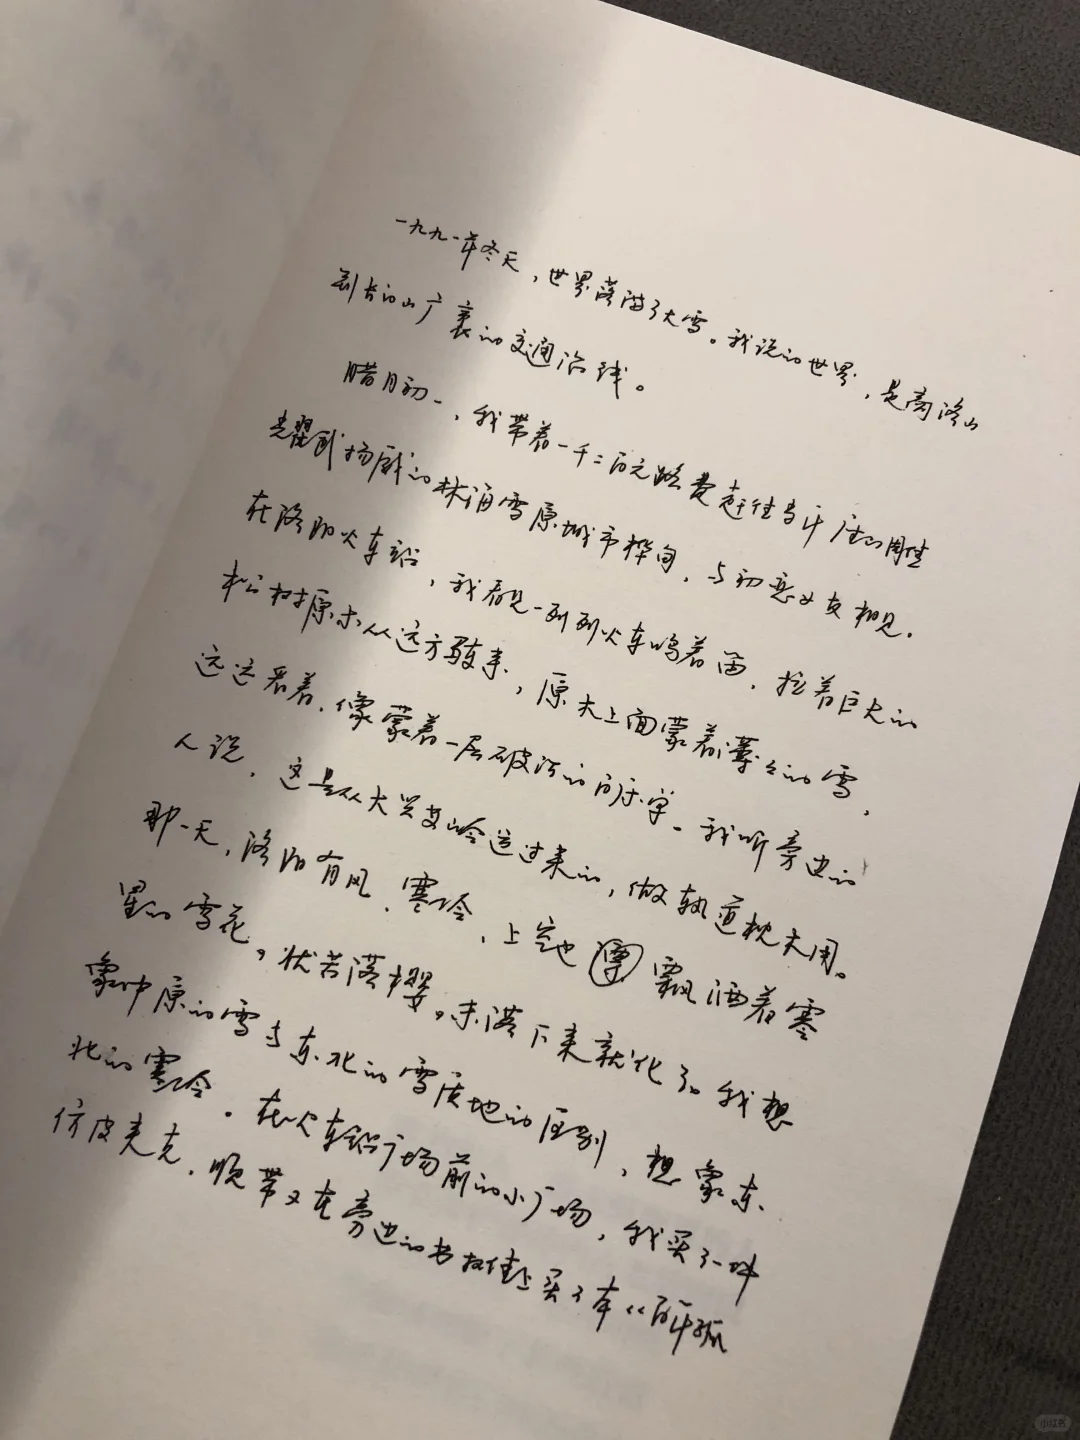 一九九一年冬天，世界落满了大雪。我说的世界，是商洛山
到长白山广袤的交通沿线。
腊月初一，我带着一千二百元路费赶往
耀武扬威的林海雪原城市桦甸，与初恋女友相见。
在洛阳火车站，我看见一列列火车鸣着笛，拉着巨大的
松树原木从远方驶来，原木上面蒙着薄薄的雪，
远远看着，像蒙着一层破洁的白床单。我听旁边的
人说，这是从大兴安岭运过来的，做轨道枕木用。
那一天，洛阳有风，寒冷，上空也飘洒着零
星的雪花，状若落樱。未落下来就化了。我想
象中原的雪与东北的雪质地的区别，想象东
北的寒冷。在火车站广场前的小广场，我买了一件
仿皮夹克，顺带又在旁边的书摊上买了本《百年孤
小红书